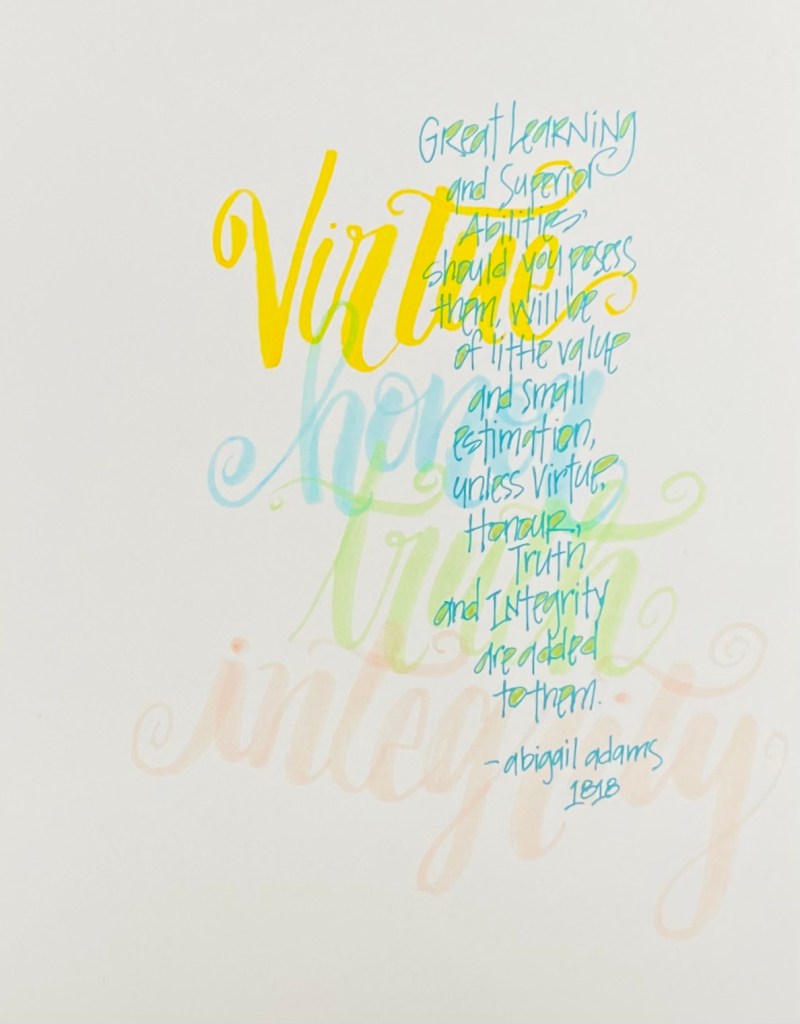 Great Learning
and Superior
Abilities,
should you posess
them, will be
of little value
and small
estimation,
unless Virtue,
Honour,
Truth
and Integrity
are added
to them.
- abigail adams
1818
Virtue
honor
truth
integrity